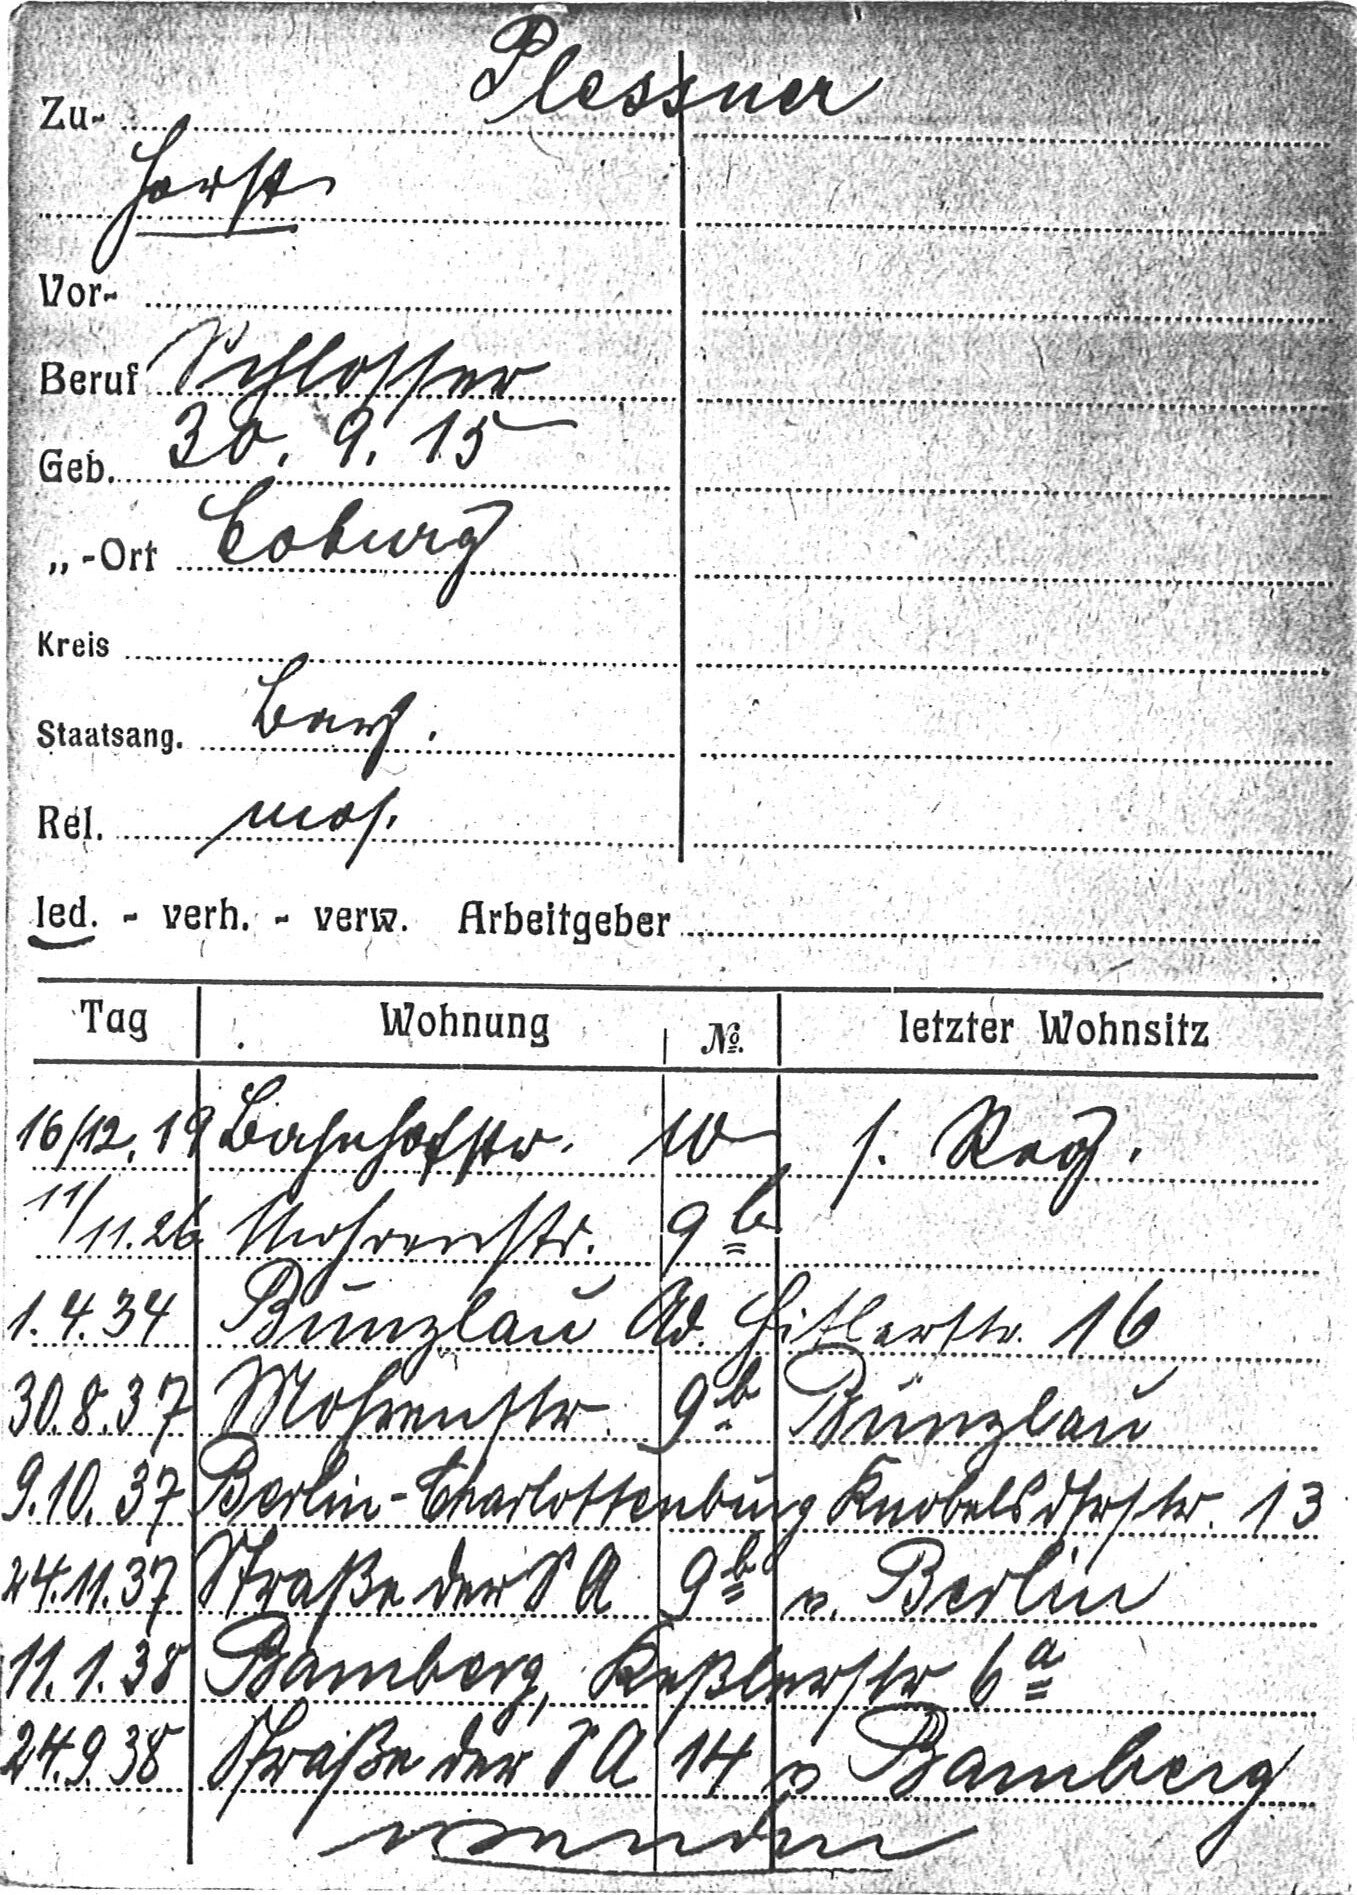 Plessner
Zu-
Horst
Vor-
Beruf Schlosser
Geb. 30. 9. 15
„ -Ort Coburg
Kreis
Staatsang. bay.
Rel. mos.
led. - verh. - verw. Arbeitgeber
Tag Wohnung №. letzter Wohnsitz
16/12. 19 Bahnhofstr. 10 s. Reg.
11/11.26 Mohrenstr. 9 b
1.4.34 Bunzlau Ad. Hitlerstr. 16
30.8.37 Mohrenstr. 9 b Bunzlau
9.10.37 Berlin-Charlottenburg Knobelsdfrstr. 13
24.11.37 Straße der SA 9 b v. Berlin
11.1.38 Bamberg, Keßlerstr 6 a
24.9.38 Straße der SA 14 v Bamberg
wenden